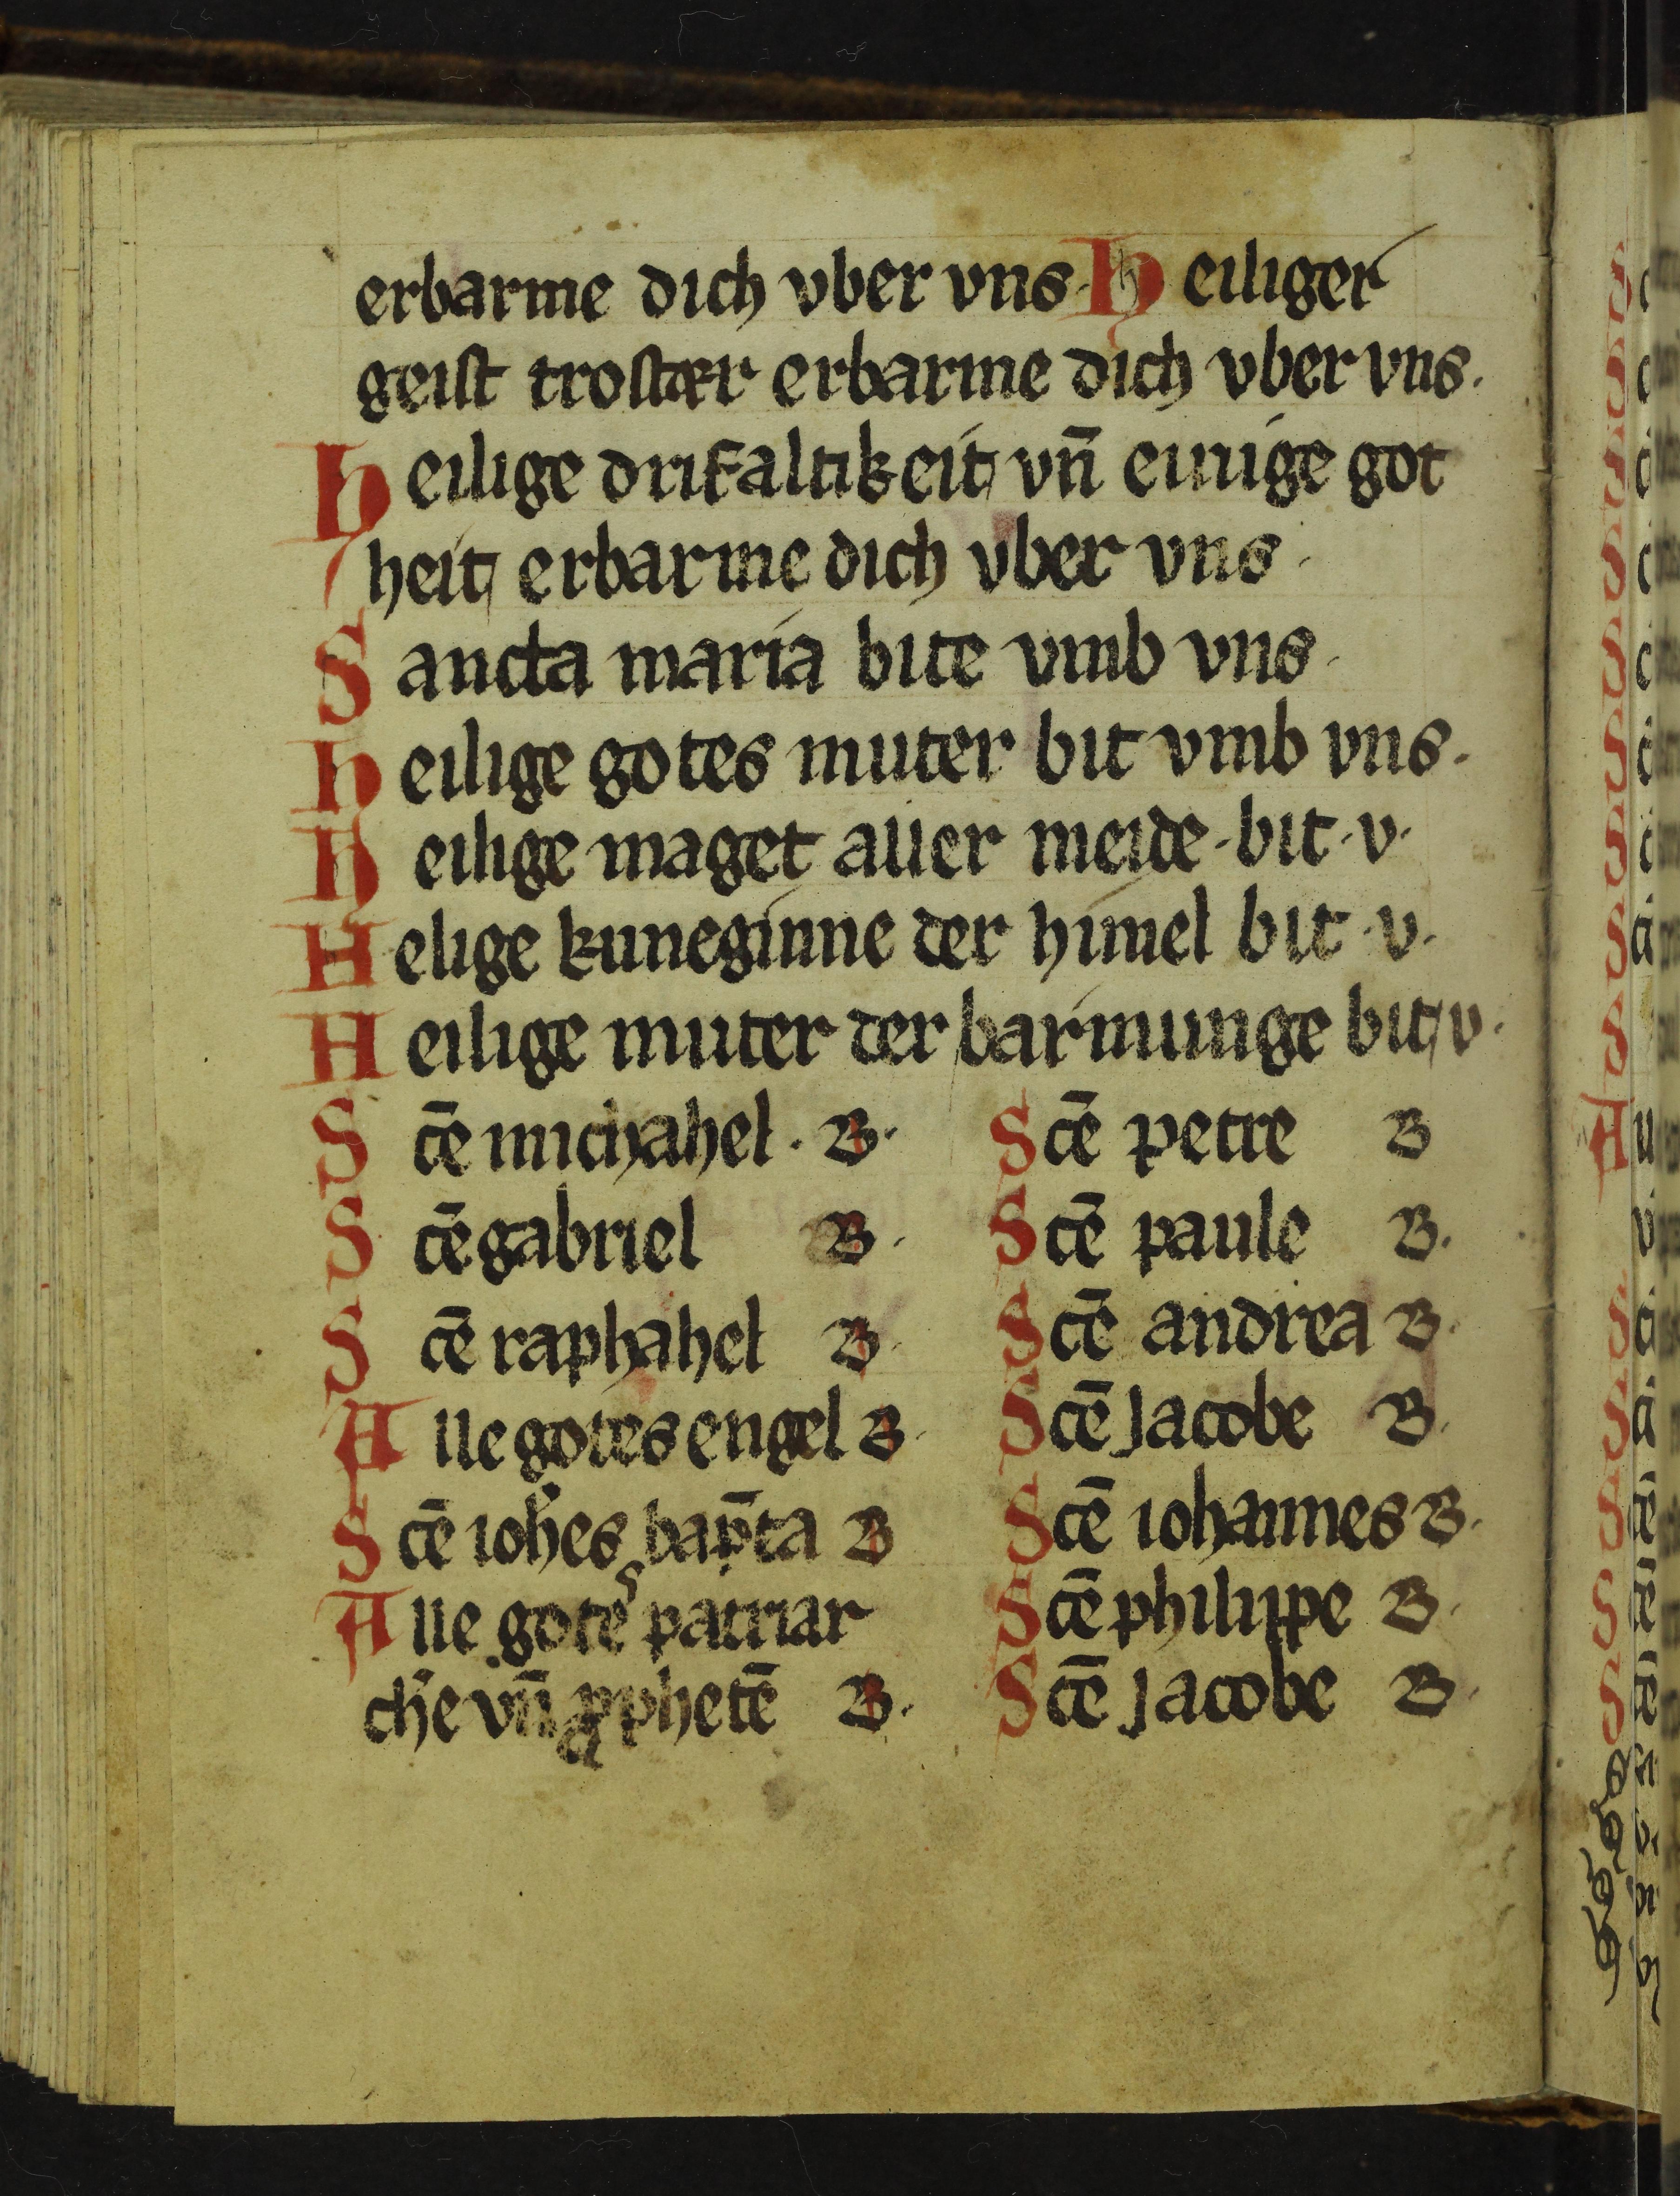 erbarme dich vber vns. Heiliger
geist trostær erbarme dich vber vns.
Heilige drifaltikeit vn̄ einige got
heit erbarme dich vber vns.
Sancta maria bite vmb vns.
Heilige gotes muter bit vmb vns.
Heilige maget aller meide. bit. v.
Helige kuneginne der himel bit. v.
Heilige muter der barmunge bit v.
Scē michahel. B.
Scē gabriel B.
Scē raphahel B.
Alle gotes engel B.
Scē ioh̄es bap̄ta B
Alle gotes patriar
che vn̄ pphetē B.
Scē petre B
Scē paule B.
Scē andrea B.
Scē Jacobe B.
Scē iohannes B.
Scē philippe B.
Scē Jacobe B.